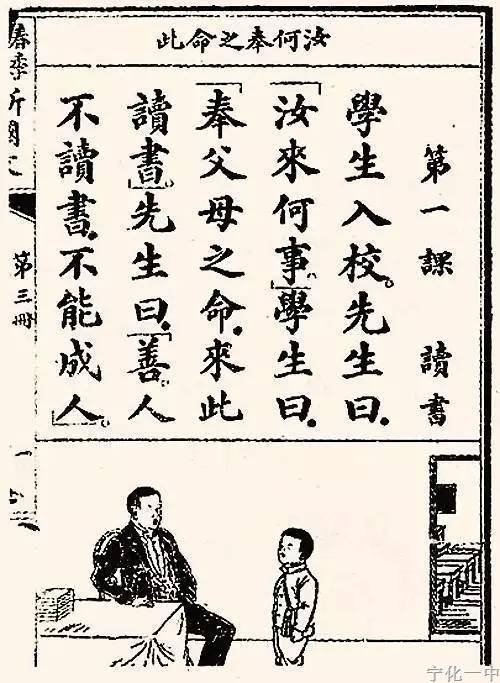 汝何奉之命此
第一課 讀書
學生入校。先生曰．
「汝來何事。」學生曰．
「奉父母之命．來此
讀書。」先生曰．「善。人
不讀書．不能成人。」
第三冊
一
宁化一中